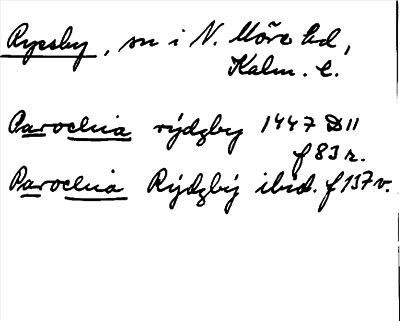 Ryssby, sn i N. Möre hd,
Kalm. l.
Parochia rýdzby 1447 D 11
f 83 r.
Parochia Rýdzbý ibid. f 137 v.